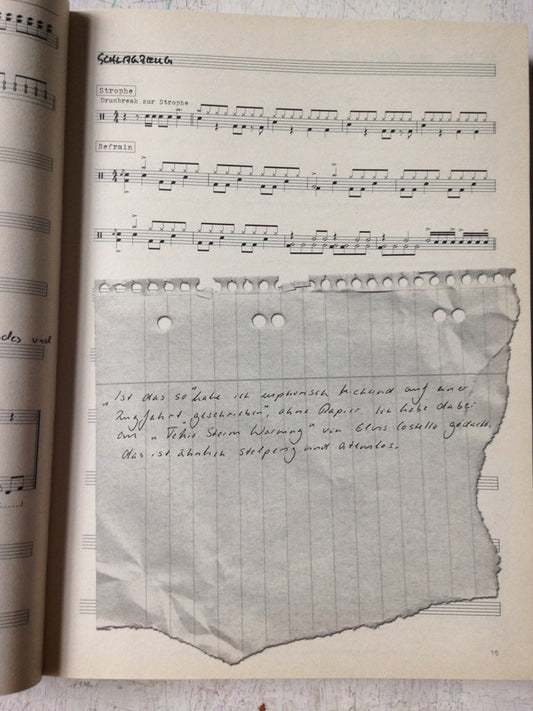 SCHLAGZEUG
Strophe
Drumbreak zur Strophe
Refrain
des und
"Ist das so" habe ich euphorisch kichernd auf einer
Zugfahrt "geschrieben", ohne Papier. Ich habe dabei
an "Tokio Storm Warning" von Elvis Costello gedacht.
das ist ähnlich stolperig und atemlos.
15